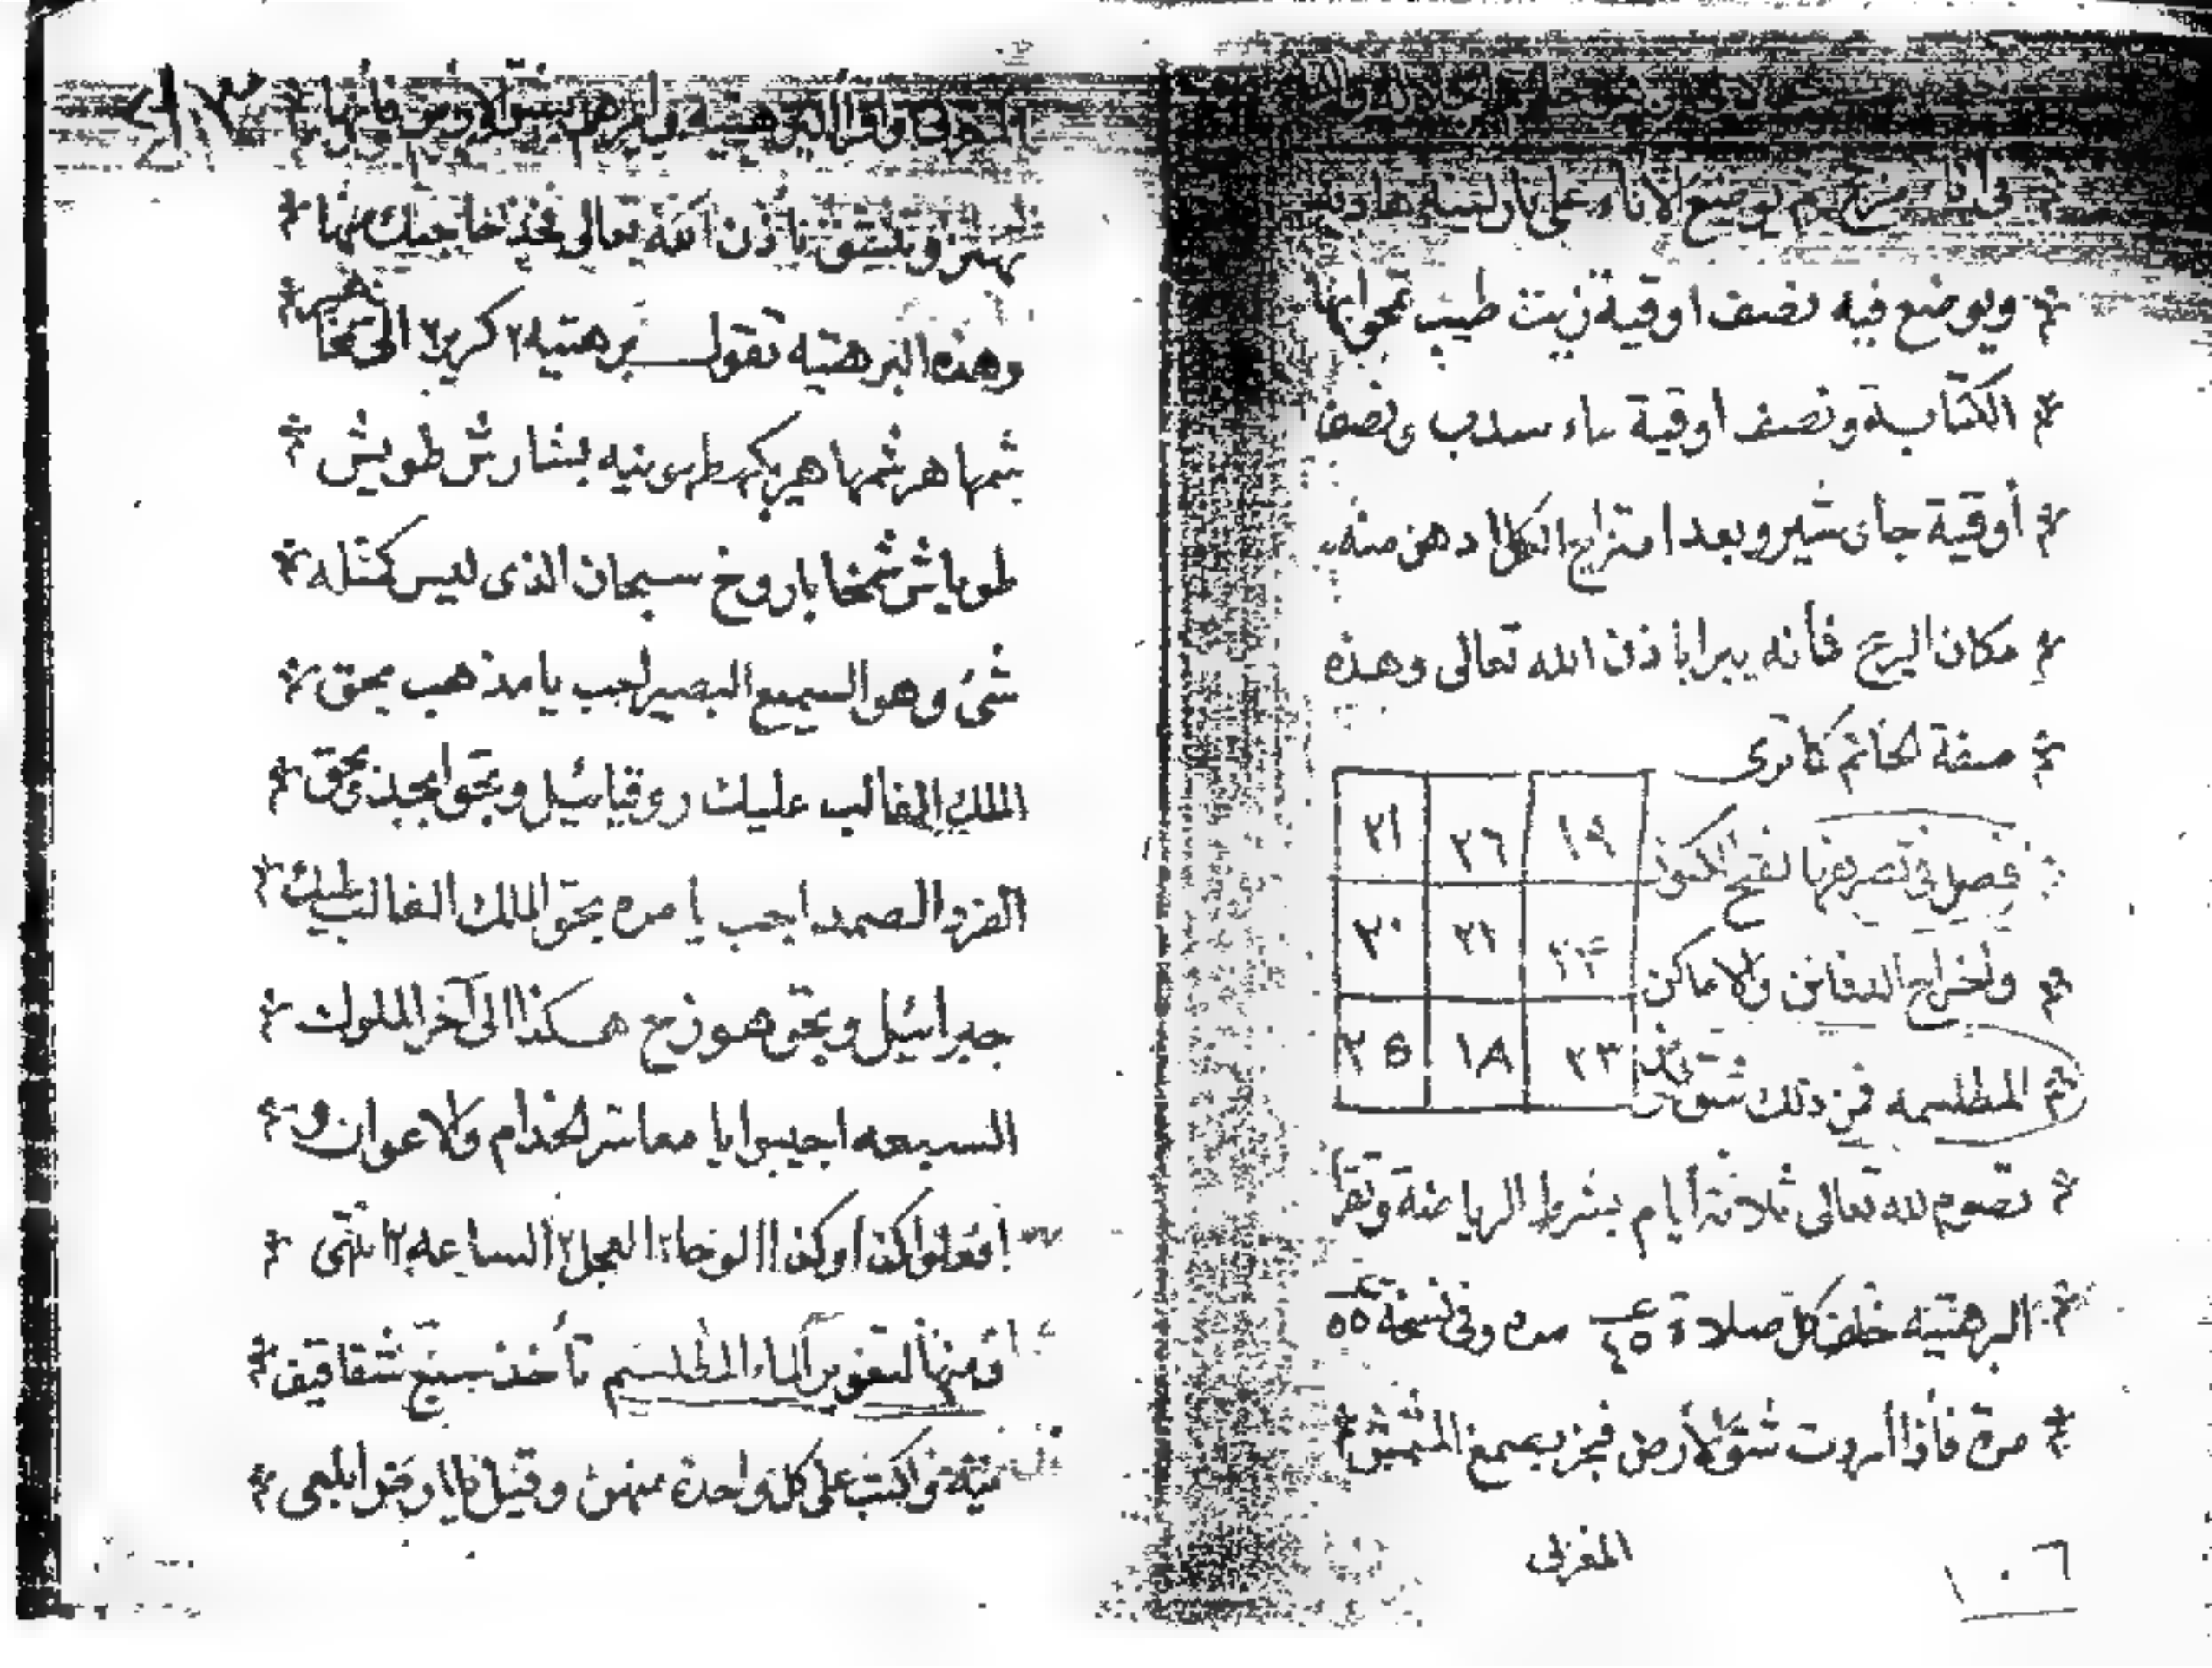 ثم يوضع الاناء على نار لينة هادية
ويوضع فيه نصف اوقية زيت طيب تمحوابها
الكتابة ونصف اوقية ماء سدب ونصف
أوقية جأى شير وبعد امتزاج الكل ادهن منه
مكان الريح فأنه يبرا باذن الله تعالى وهذه
صفة الخاتم كاترى
١٩ ٢٦ ٢١
٢١ ٢٠
٢٣ ١٨ ٢٥
فصل فى تصريفها لفتح الكنوز
واخراج الدفائن والاماكن
المطلسمه فمن ذلك شق
تصوم لله تعالى ثلاثة أيام بشرط الرياضة وتقرأ
البرهتيه خلف كل صلاة ٤٥ مره وفى نسخة ٥٥
مرة فأذا أردت شق الأرض فبخر بصمغ المشمش
المغربى
١٠٦
تهتز وتنشق بأذن الله تعالى فخذ حاجتك منها
وهذه البرهتيه تقول برهتيه ٢ كرير ٢ الى
شمها هر شمها هير بكهطهونيه بشارش طويش
طوياش شمخا باروخ سبحان الذى ليس كمثله
شىء وهو السميع البصير اجب يا مذهب بحق
الملك الغالب عليك روقيائيل وبحق ابجد وبحق
الفرد الصمد اجب يا مره بحق الملك الغالب عليك
جبرائيل وبحق هوزح هكذا الى آخر الملوك
السبعه اجيبوا يا معاشر الخدام والاعوان و
افعلوا كذا وكذا الوحا ٢ العجل ٢ الساعه ٢ انتهى
ومنها لتغوير الماء المطلسم تأخذ سبع شقاقيف
نيئه واكتب على كل واحدة منهن وقيل يا ارض ابلعى